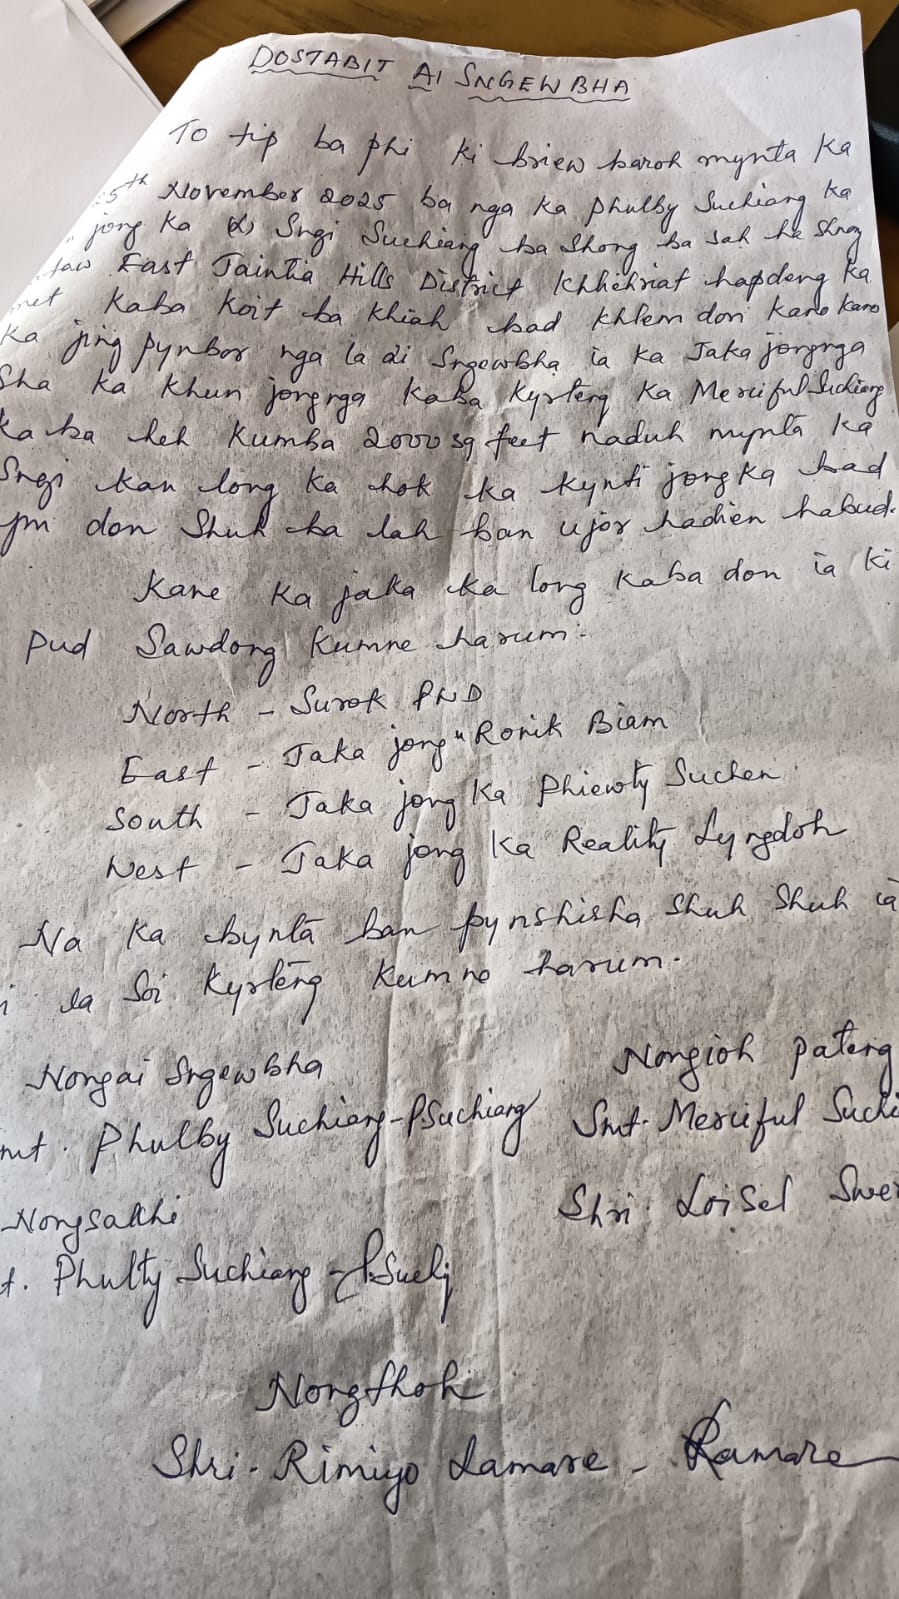 DOSTABIT AI SNGEWBHA
To tip ba phi ki briew baroh mynta ka
5th November 2025 ba nga ka Phulby Suchiang ka
jong ka (L) Sngi Suchiang ba Shong ba sah ha Shnong
East Jaintia Hills District Khliehriat hapdeng ka
met kaba koit ba khiah bad khlem don kano kano
ka jing pynbor nga la ai Sngewbha ia ka Jaka jongnga
Sha ka khun jongnga kaba kyrteng ka Merciful Suchiang
kaba heh kumba 2000 sq feet naduh mynta ka
Sngi kan long ka hok ka kynti jongka bad
ym don Shuh ba lah ban ujor hadien habud.
Kane ka jaka ka long kaba don ia ki
Pud Sawdong kumne harum:-
North - Surok PWD
East - Jaka jong u Ronik Biam
South - Jaka jong ka Phiewty Suchen
West - Jaka jong ka Reality Lyngdoh
Na ka bynta ban pynshisha shuh shuh ia
i la Soi kyrteng kumne harum.
Nongai Sngewbha Nongioh pateng
mt. Phulby Suchiang - PSuchiang Smt. Merciful Suchi
Nongsakhi Shri. Loisel Swe
t. Phulty Suchiang -
Nongthoh
Shri. Rimiyo Lamare - Lamare